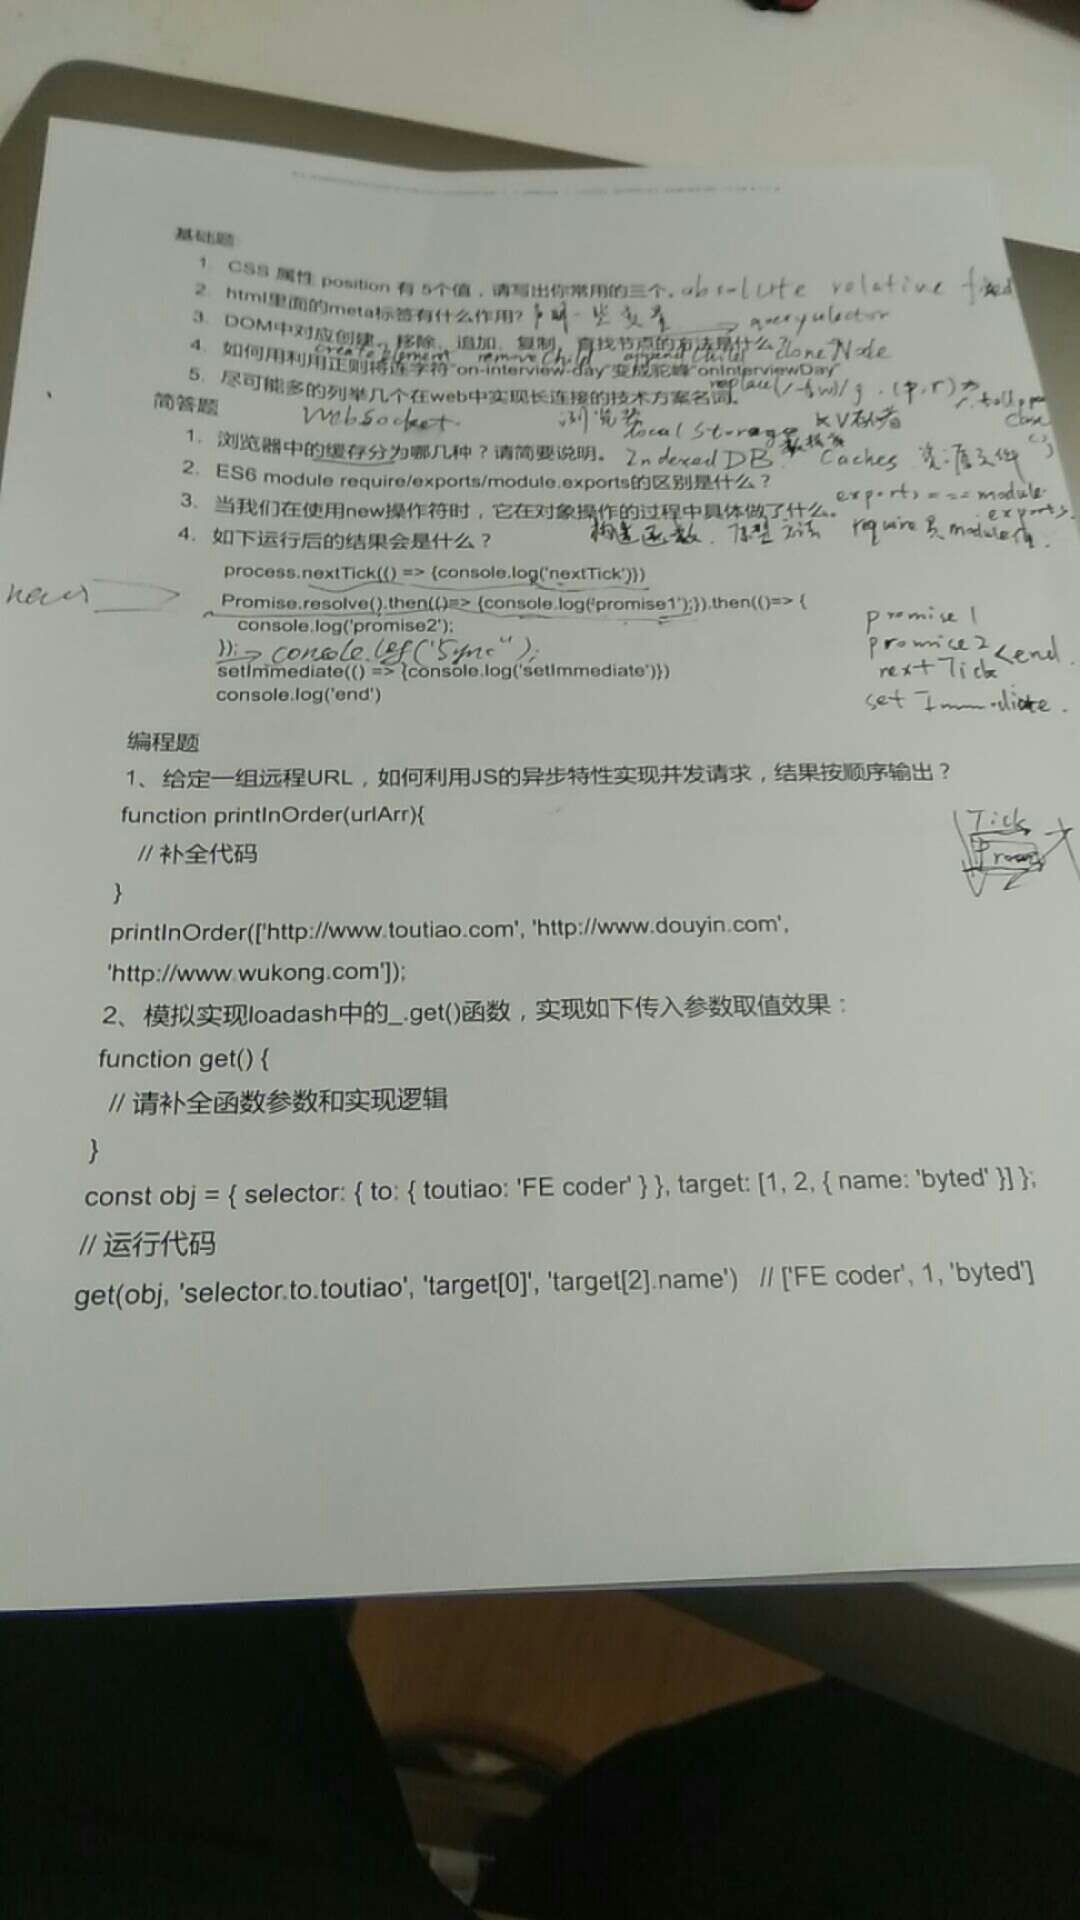 基础题
1. CSS 属性 position 有 5个值，请写出你常用的三个。absolute relative fixed
2. html里面的meta标签有什么作用?
queryselector
3. DOM中对应创建、移除、追加、复制、查找节点的方法是什么?
createElement removeChild cloneNode
4. 如何用利用正则将连字符"on-interview-day"变成驼峰"onInterviewDay"
5. 尽可能多的列举几个在web中实现长连接的技术方案名词。
WebSocket
简答题
浏览器 local Storage KV存储
1. 浏览器中的缓存分为哪几种？请简要说明。 IndexedDB 数据库 Caches 资源文件
2. ES6 module require/exports/module.exports的区别是什么？
exports === module.exports
3. 当我们在使用new操作符时，它在对象操作的过程中具体做了什么。
构造函数. 原型方法 require
4. 如下运行后的结果会是什么？
process.nextTick(() => {console.log('nextTick')})
new
Promise.resolve().then(()=> {console.log('promise1');}).then(()=> {
console.log('promise2');
}); console.log("Sync");
setImmediate(() => {console.log('setImmediate')})
console.log('end')
promise1
promise2 <end.
nextTick
setImmediate.
编程题
1、给定一组远程URL，如何利用JS的异步特性实现并发请求，结果按顺序输出？
function printInOrder(urlArr){
// 补全代码
}
Tick
printInOrder(['http://www.toutiao.com', 'http://www.douyin.com',
'http://www.wukong.com']);
2、模拟实现loadash中的_.get()函数，实现如下传入参数取值效果：
function get() {
// 请补全函数参数和实现逻辑
}
const obj = { selector: { to: { toutiao: 'FE coder' } }, target: [1, 2, { name: 'byted' }] };
// 运行代码
get(obj, 'selector.to.toutiao', 'target[0]', 'target[2].name') // ['FE coder', 1, 'byted']